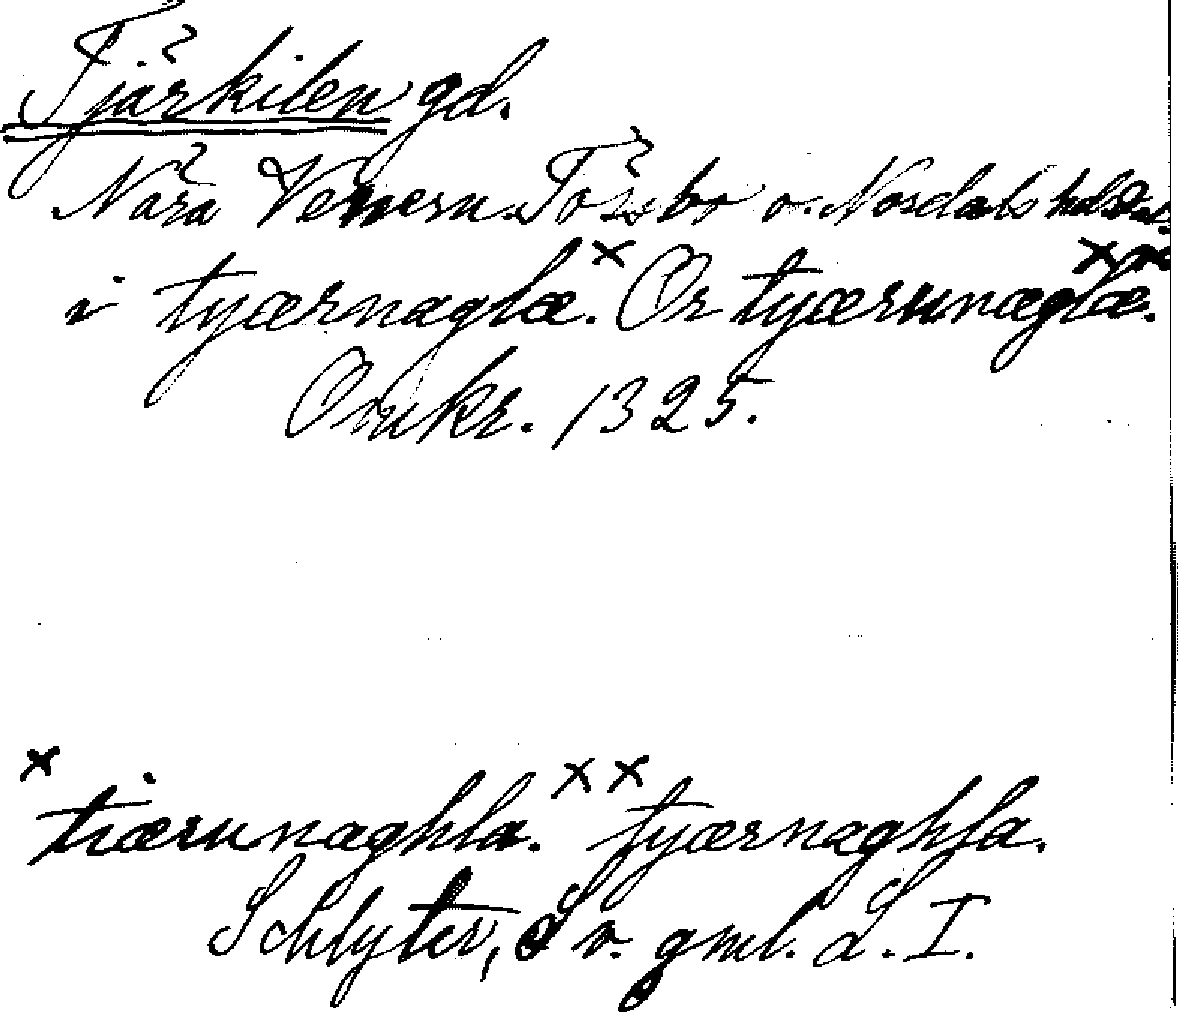 Tjärkilen gd.
Nära Venern. Tössbo o. Nordals
i tyærnaglæ. Or tyærunæglæ.
Omkr. 1325.
tiærunæghla. tyærnæghla.
Schlyter, Sv. gml. L. I.